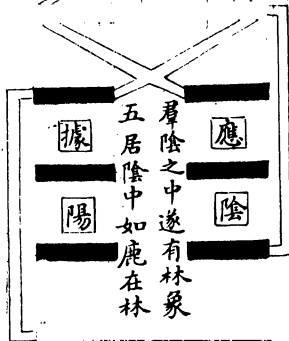 應
陰
羣陰之中遂有林象
五居陰中如鹿在林
據
陽